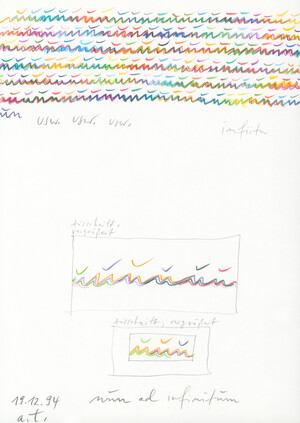 nün
usw. usw. usw.
ausschnitt,
vergrößert
ausschnitt, vergrößert
19.12.94
nün ad infinitum
a.t.